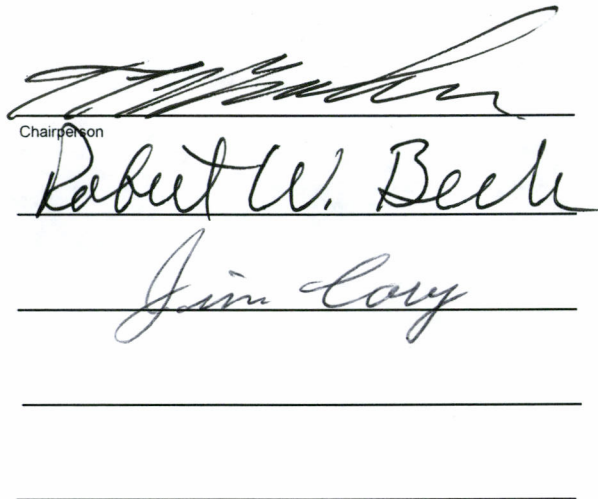 Chairperson
Robert W. Beck
Jim Cory